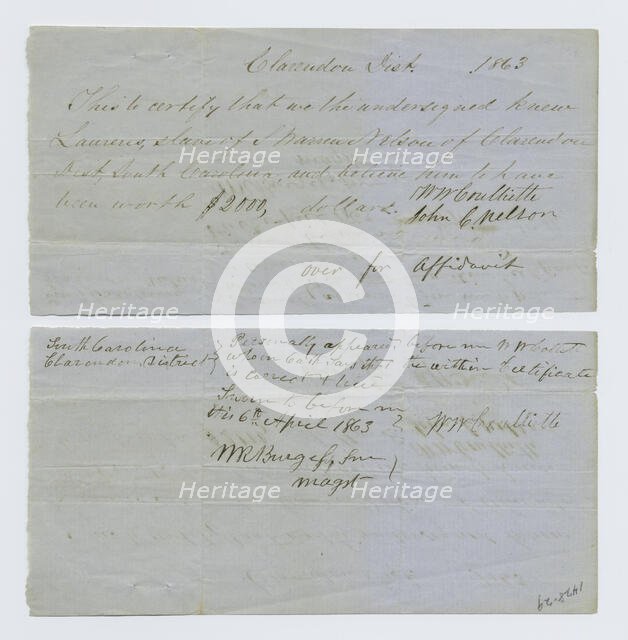 Clarendon Dist. 1863
This is to certify that we the undersigned knew
Laurens, slave of S Warren Nelson of Clarendon
Dist, South Carolina, and believe him to have
been worth $2000, dollars.
WW Coulliette
John C. Nelson
over for Affidavit
South Carolina } Personally appeared before me WW
Clarendon District } who on oath says that the within Certificate
is correct & true
Sworn to before me
this 6th April 1863 } WW Coulliette
WR Burgess, Snr }
magst
Heritage
Heritage
Heritage
Heritage
Heritage
Heritage
Heritage
Heritage
Heritage
Heritage
Heritage
C
1428-29